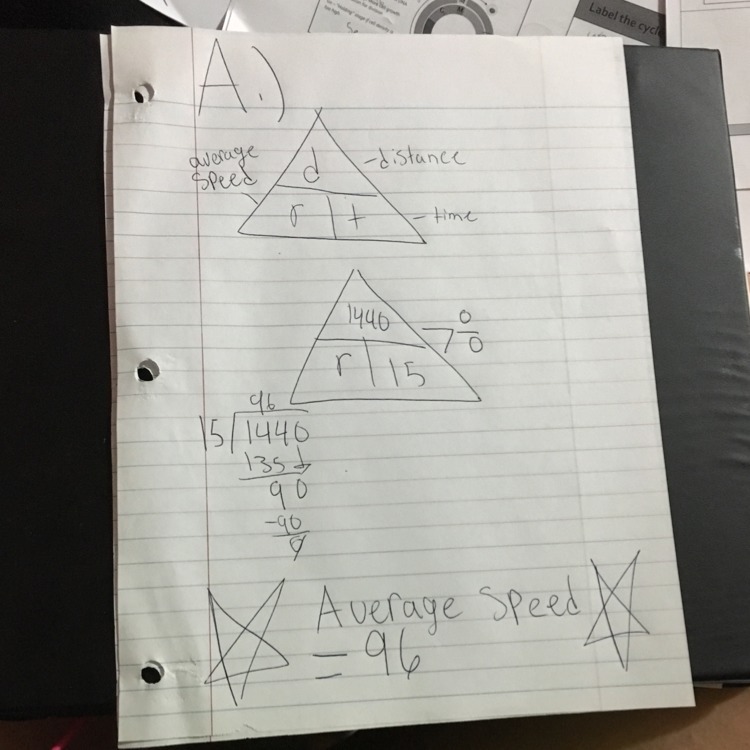 Label the cycl
A.)
average
speed
d
- distance
r
t
- time
1440
0
0
r
15
96
15 1440
135
90
-90
0
Average Speed
= 96